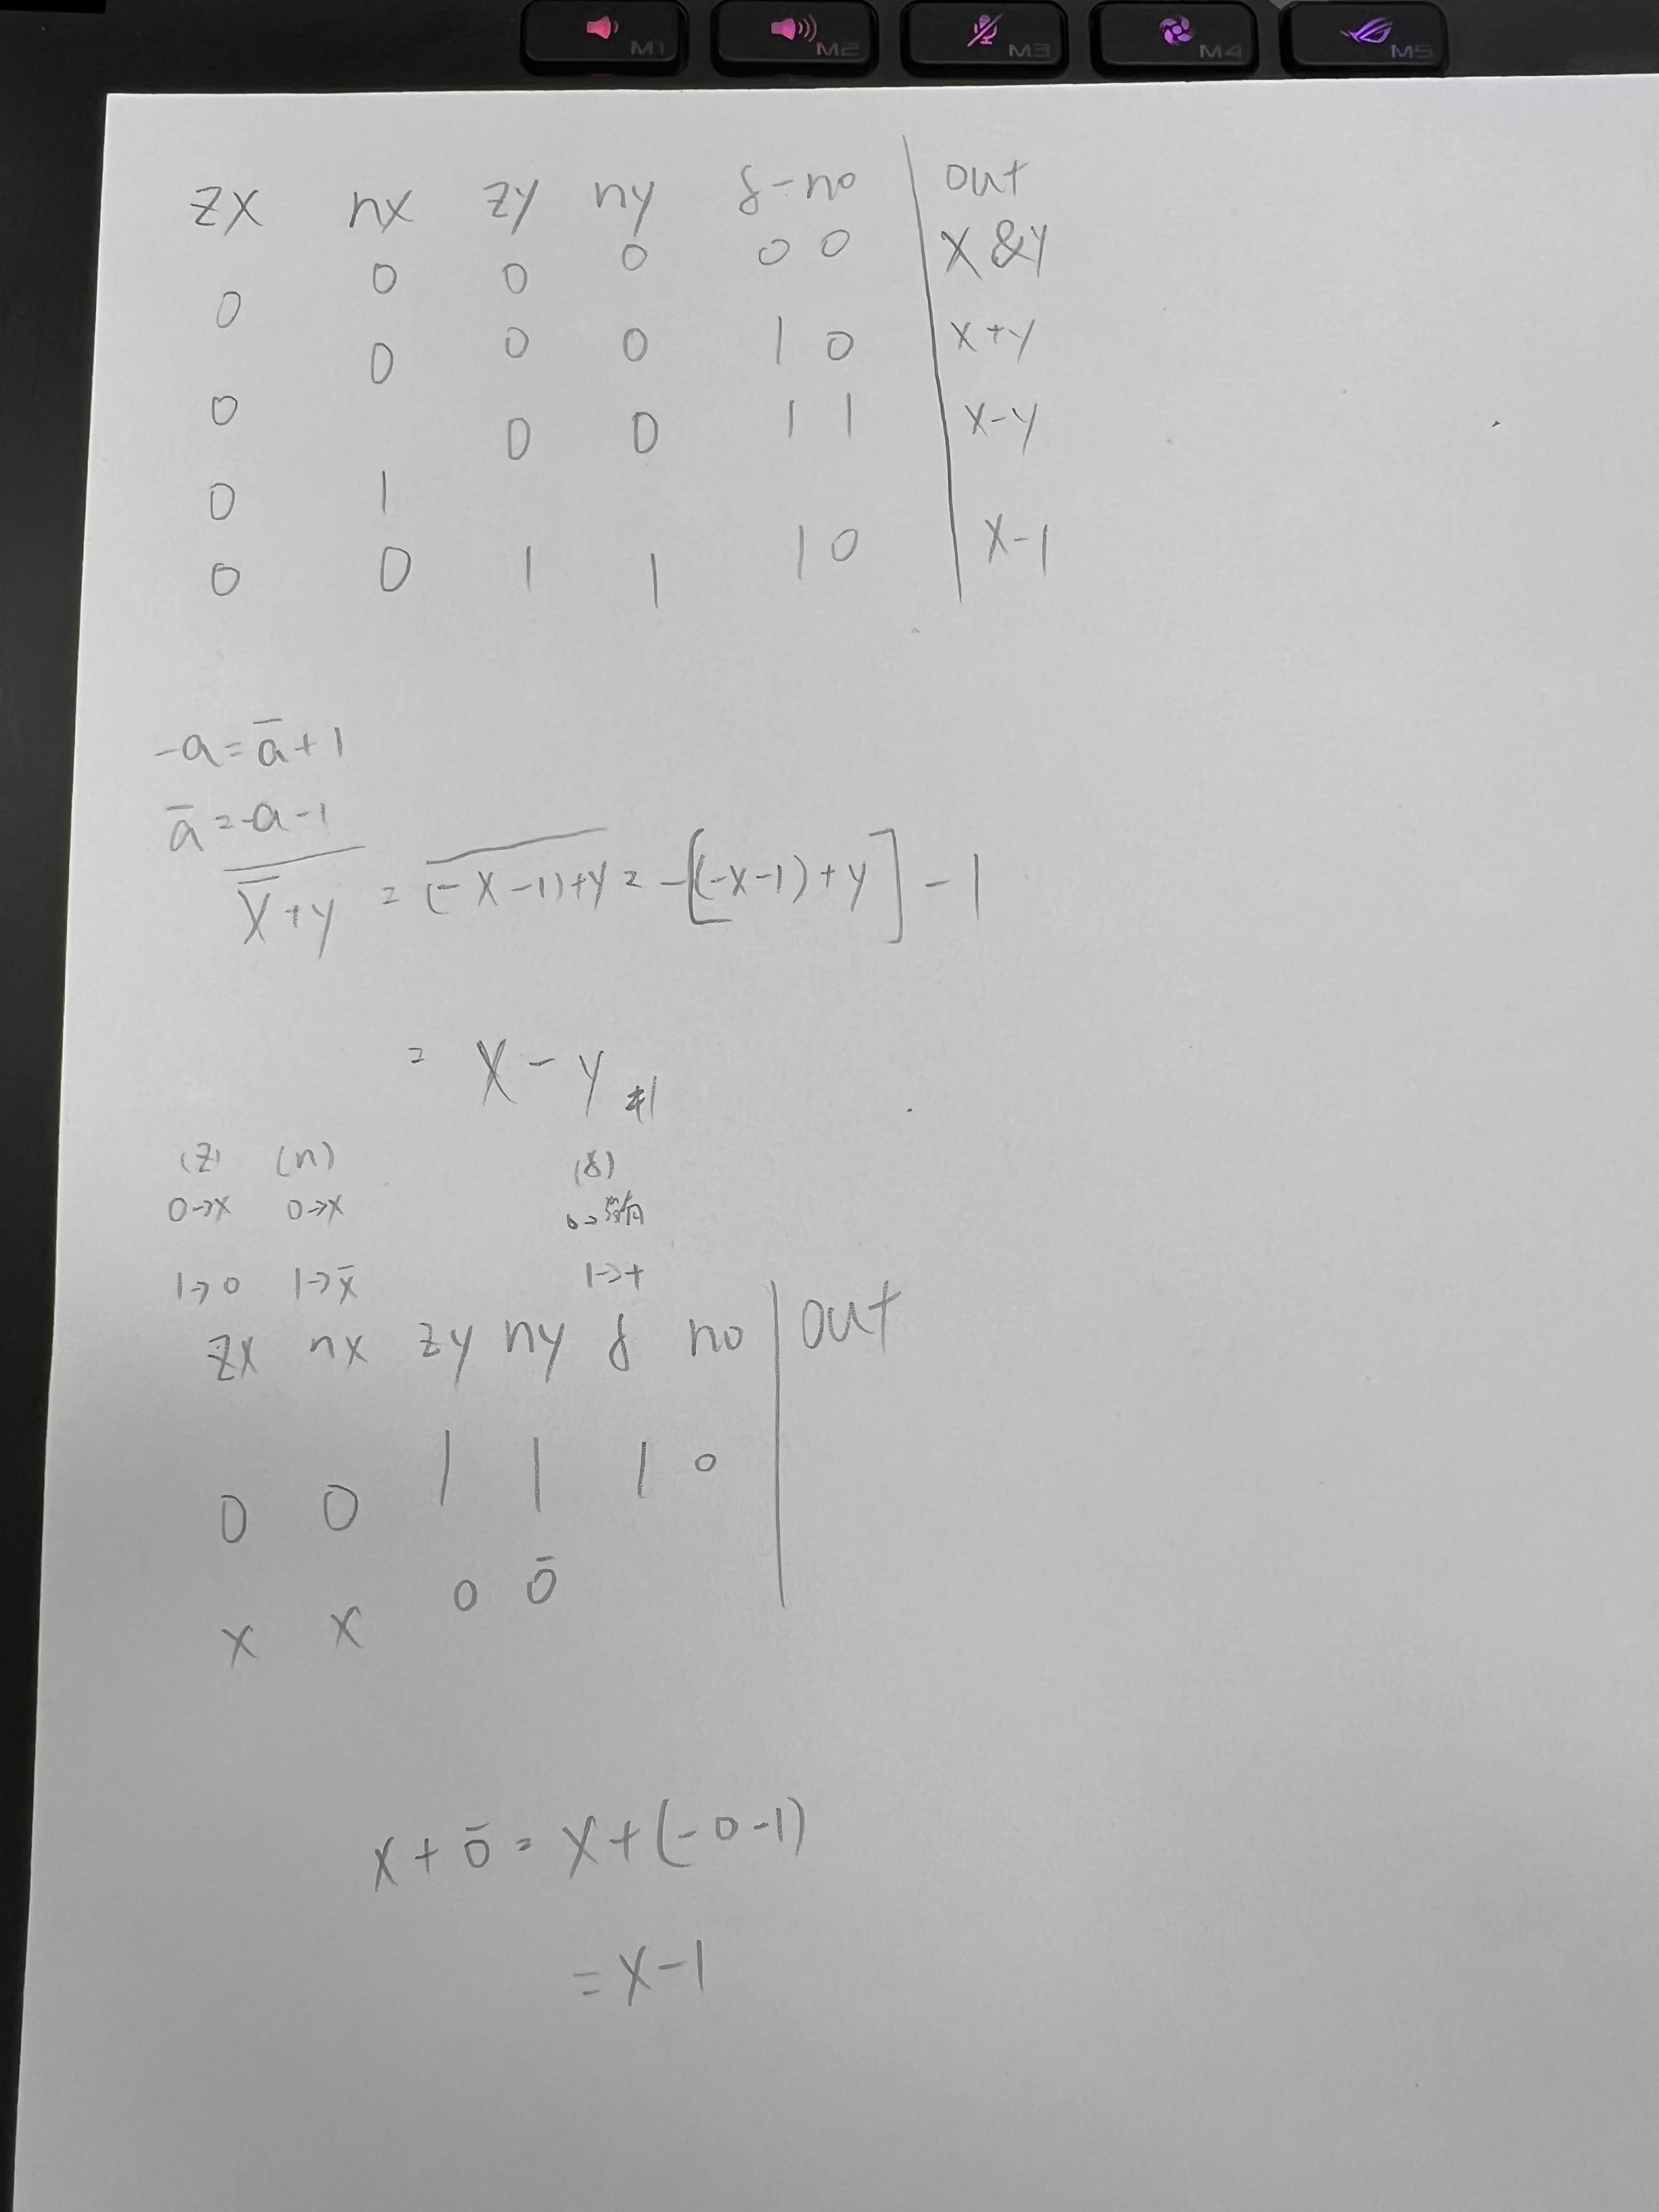 M1 M2 M3 M4 M5
zx nx zy ny f-no out
0 0 0 0 0 0 x&y
0 0 0 0 1 0 x+y
0 1 0 0 1 1 x-y
0 0 1 1 1 0 x-1
-a=a̅+1
a̅=-a-1
‾(x̅+y) = ‾((-x-1)+y) = -[(-x-1)+y]-1
= x-y
(z) (n) (f)
0→x 0→x 0→
1→0 1→x̅ 1→+
zx nx zy ny f no out
0 0 1 1 1 0
x x 0 0̅
x+0̅=x+(-0-1)
=x-1